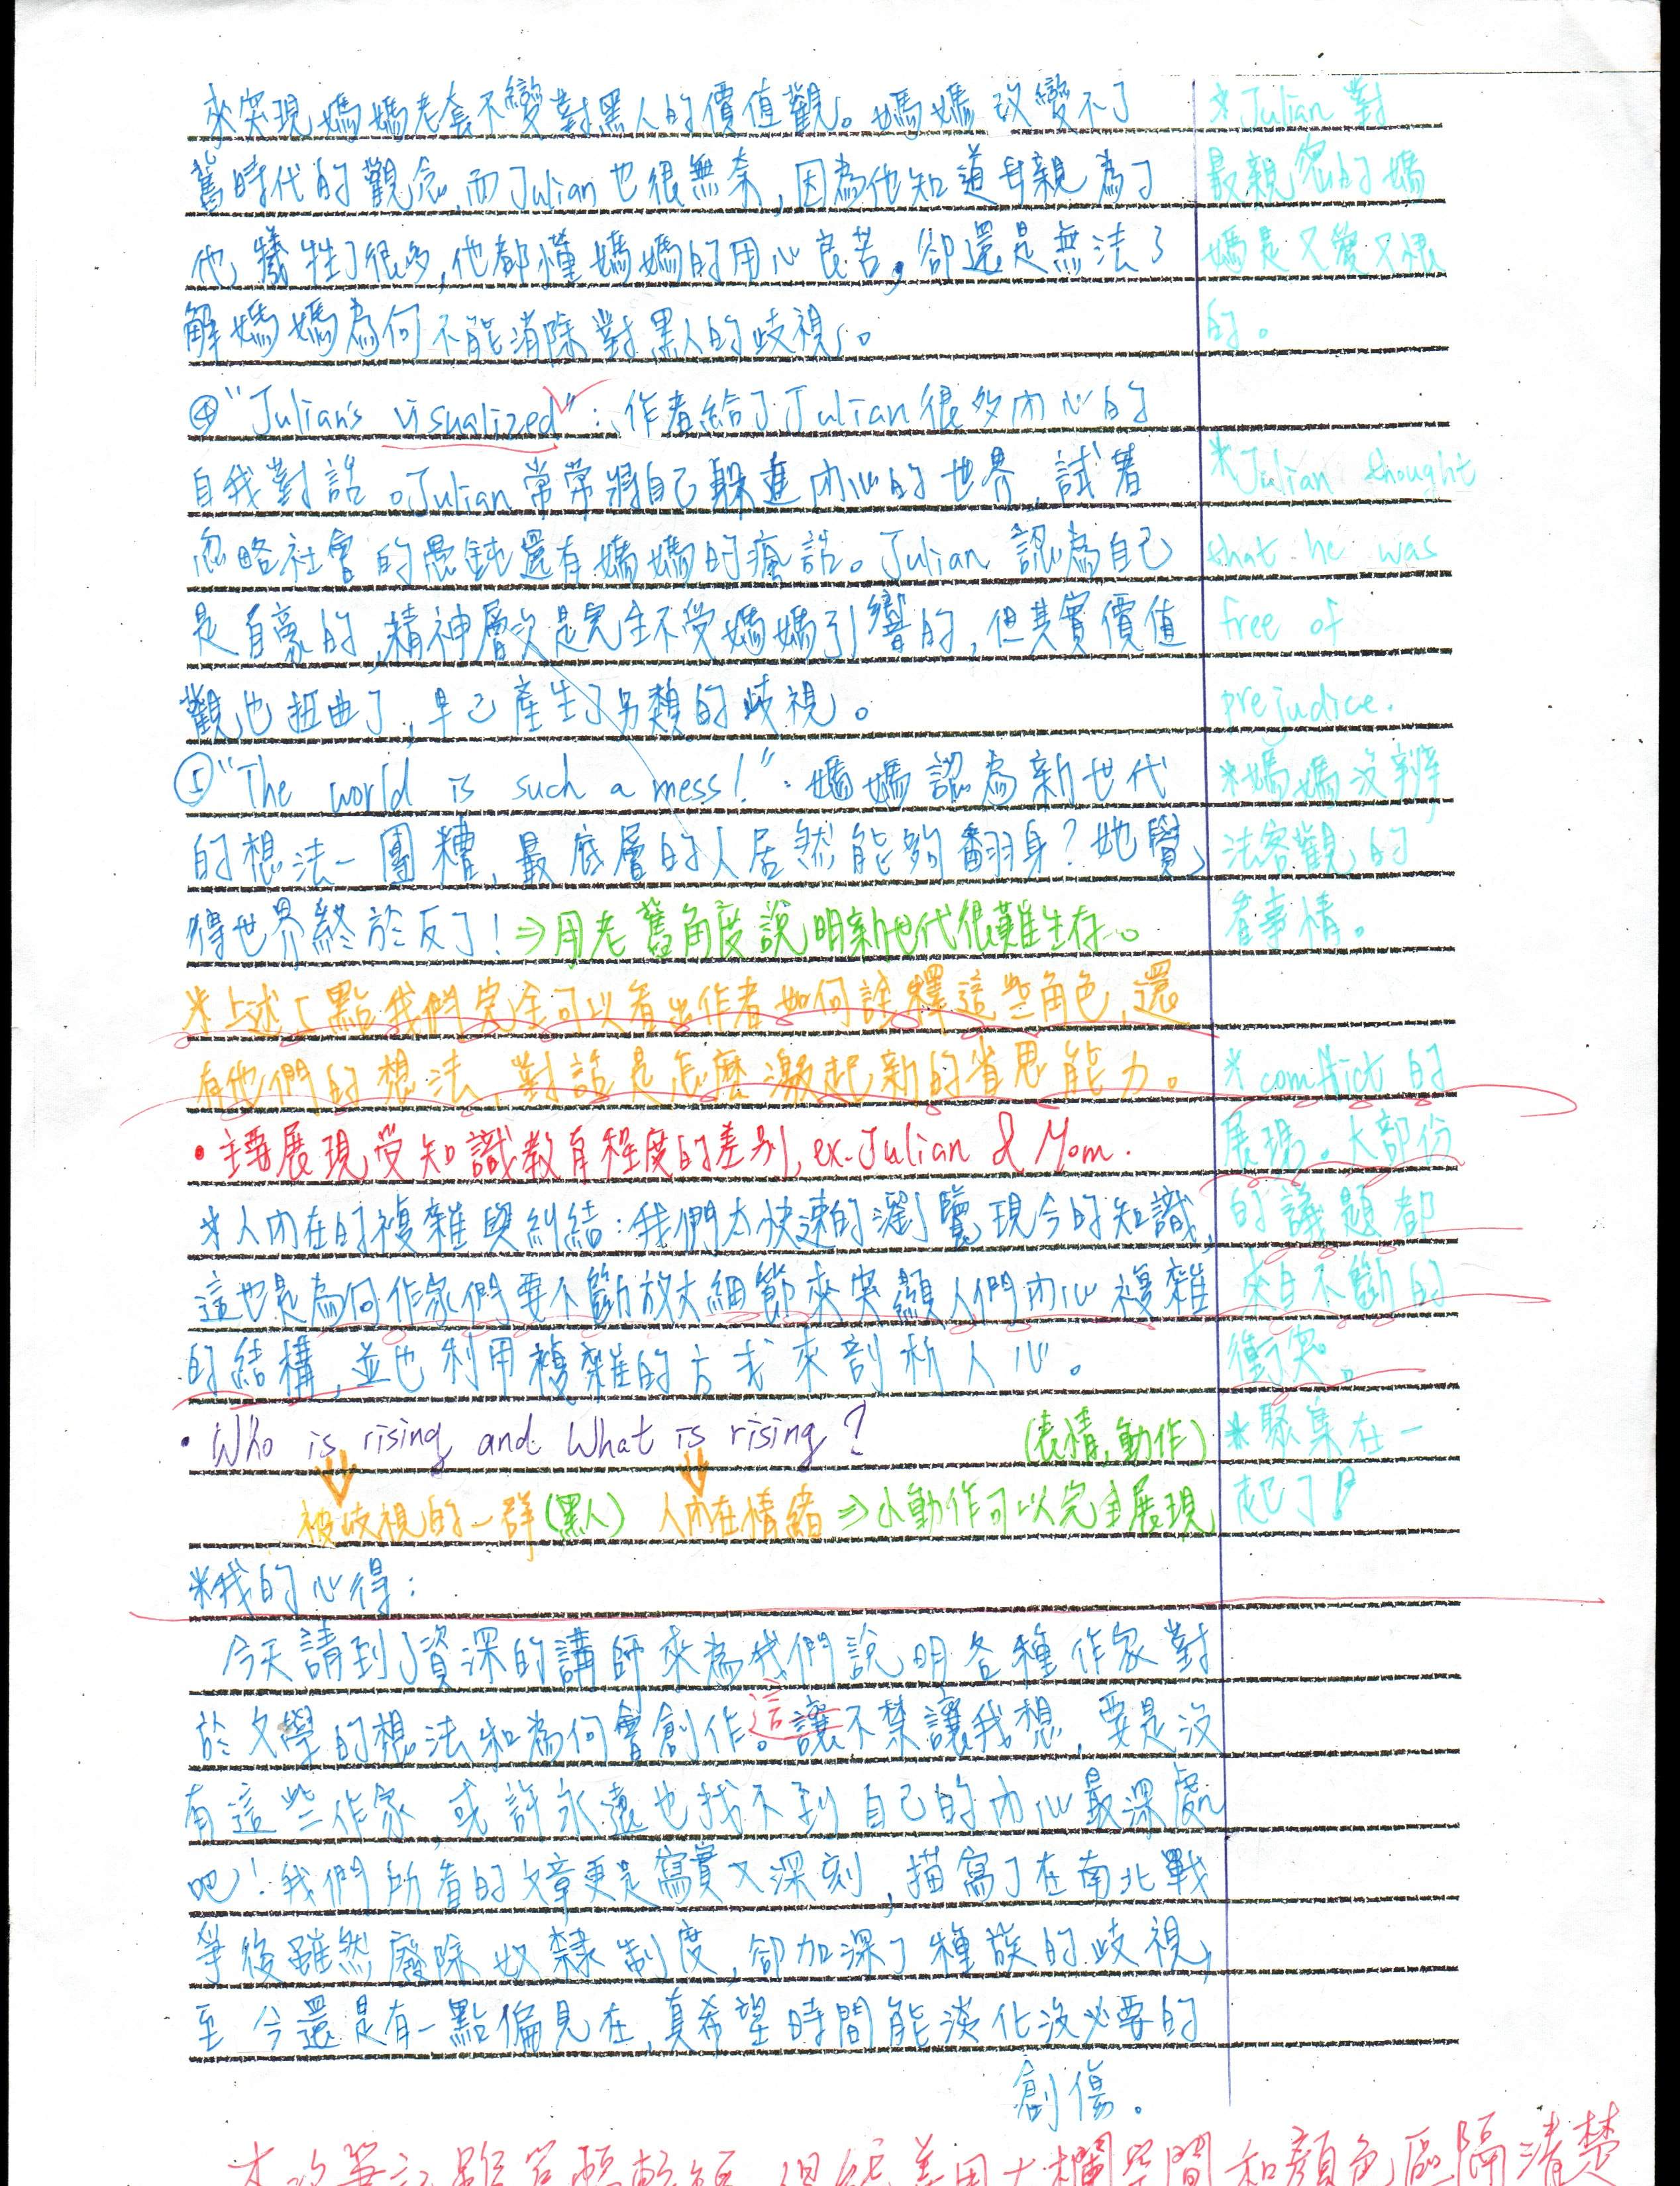 來突現媽媽老套不變對黑人的價值觀。媽媽改變不了
舊時代的觀念,而Julian也很無奈,因為他知道母親為了
他犧牲了很多,他都懂媽媽的用心良苦,卻還是無法了
解媽媽為何不能消除對黑人的歧視。
④"Julian's visualized":作者給了Julian很多內心的
自我對話。Julian常常將自己躲進內心的世界,試著
忽略社會的愚鈍還有媽媽的瘋話。Julian認為自己
是自豪的,精神層次是完全不受媽媽引響的,但其實價值
觀也扭曲了,早已產生了另類的歧視。
⑤"The world is such a mess!":媽媽認為新世代
的想法一團糟,最底層的人居然能夠翻身?她覺
得世界終於反了!⇒用老舊角度說明新世代很難生存。
*上述 點我們完全可以看出作者如何詮釋這些角色,還
有他們的想法、對話是怎麼激起新的省思能力。
•主要展現受知識教育程度的差別,ex.Julian & Mom.
*人內在的複雜與糾結:我們太快速的瀏覽現今的知識,
這也是為何作家們要不斷放大細節來突顯人們內心複雜
的結構,並也利用複雜的方式來剖析人心。
•Who is rising and What is rising? (表情,動作)
被歧視的一群(黑人) 人內在情緒⇒小動作可以完全展現
*我的心得:
今天請到了資深的講師來為我們說明各種作家對
於文學的想法和為何會創作。這讓不禁讓我想,要是沒
有這些作家,或許永遠也找不到自己的內心最深處
吧!我們所看的文章更是寫實又深刻,描寫了在南北戰
爭後雖然廢除奴隸制度,卻加深了種族的歧視,
至今還是有一點偏見在,真希望時間能淡化沒必要的
創傷。
*Julian對
最親密的媽
媽是又愛又恨
的。
*Julian thought
that he was
free of
prejudice.
*媽媽沒辦
法客觀的
看事情。
*conflict的
展現。大部份
的議題都
來自不斷的
衝突。
*聚集在一
起了!
和顏色區隔清楚